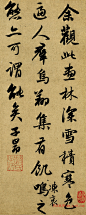 余觀此畫林深雪積寒色
逼人群烏翔集有飢鳴之
凍哀
態亦可謂能矣子昂